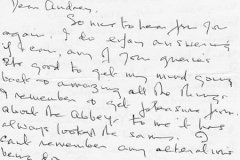 Dear Andrew,
So nice to hear from you
again. I do enjoy answering
if I can, any of your queries
its good to get my mind going
back to amazing all the things
I remember & get pleasure from.
about the Abbey to me it has
always looked the same. I
cant remember any alterations
being